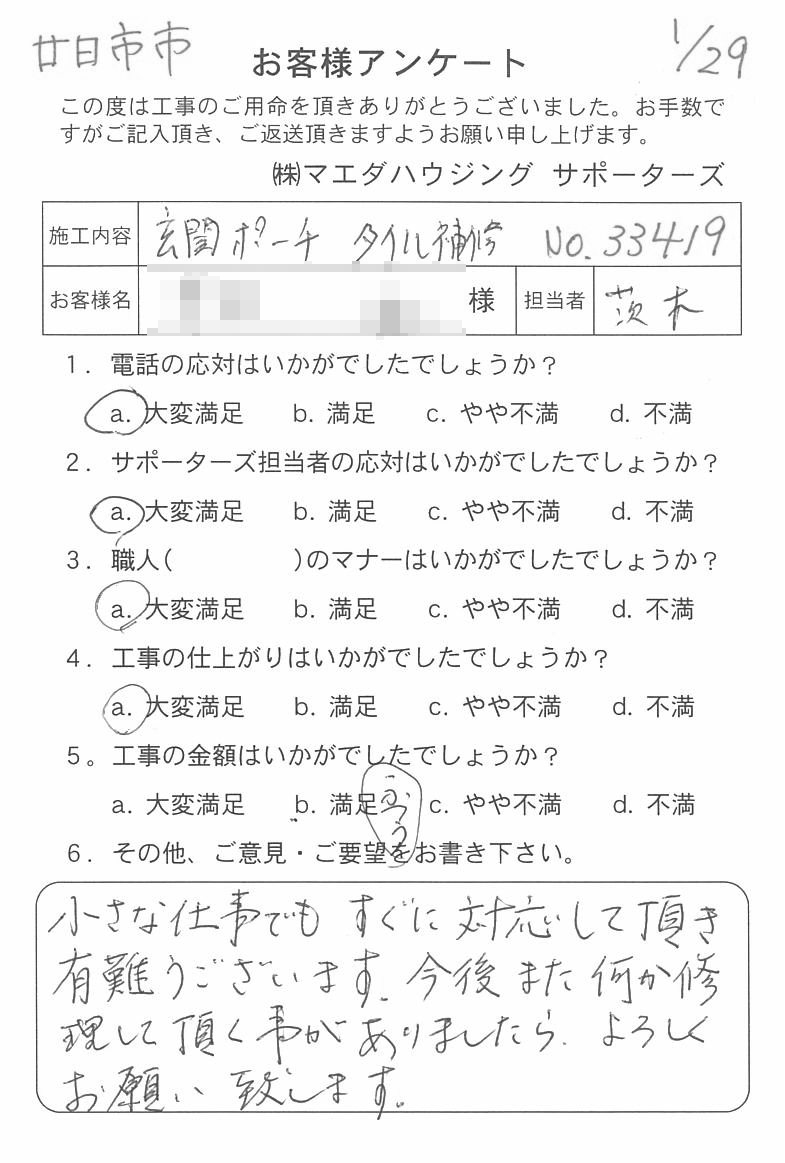 廿日市市
お客様アンケート
1/29
この度は工事のご用命を頂きありがとうございました。お手数で
すがご記入頂き、ご返送頂きますようお願い申し上げます。
㈱マエダハウジング サポーターズ
施工内容 玄関ポーチ タイル補修 No.33419
お客様名 様 担当者 茨木
1. 電話の応対はいかがでしたでしょうか?
a. 大変満足 b. 満足 c. やや不満 d. 不満
2. サポーターズ担当者の応対はいかがでしたでしょうか?
a. 大変満足 b. 満足 c. やや不満 d. 不満
3. 職人( )のマナーはいかがでしたでしょうか?
a. 大変満足 b. 満足 c. やや不満 d. 不満
4. 工事の仕上がりはいかがでしたでしょうか?
a. 大変満足 b. 満足 c. やや不満 d. 不満
5。工事の金額はいかがでしたでしょうか?
a. 大変満足 b. 満足 ふつう c. やや不満 d. 不満
6. その他、ご意見・ご要望をお書き下さい。
小さな仕事でも すぐに 対応して頂き
有難うございます。今後また何か修
理して頂く事がありましたら、よろしく
お願い致します。